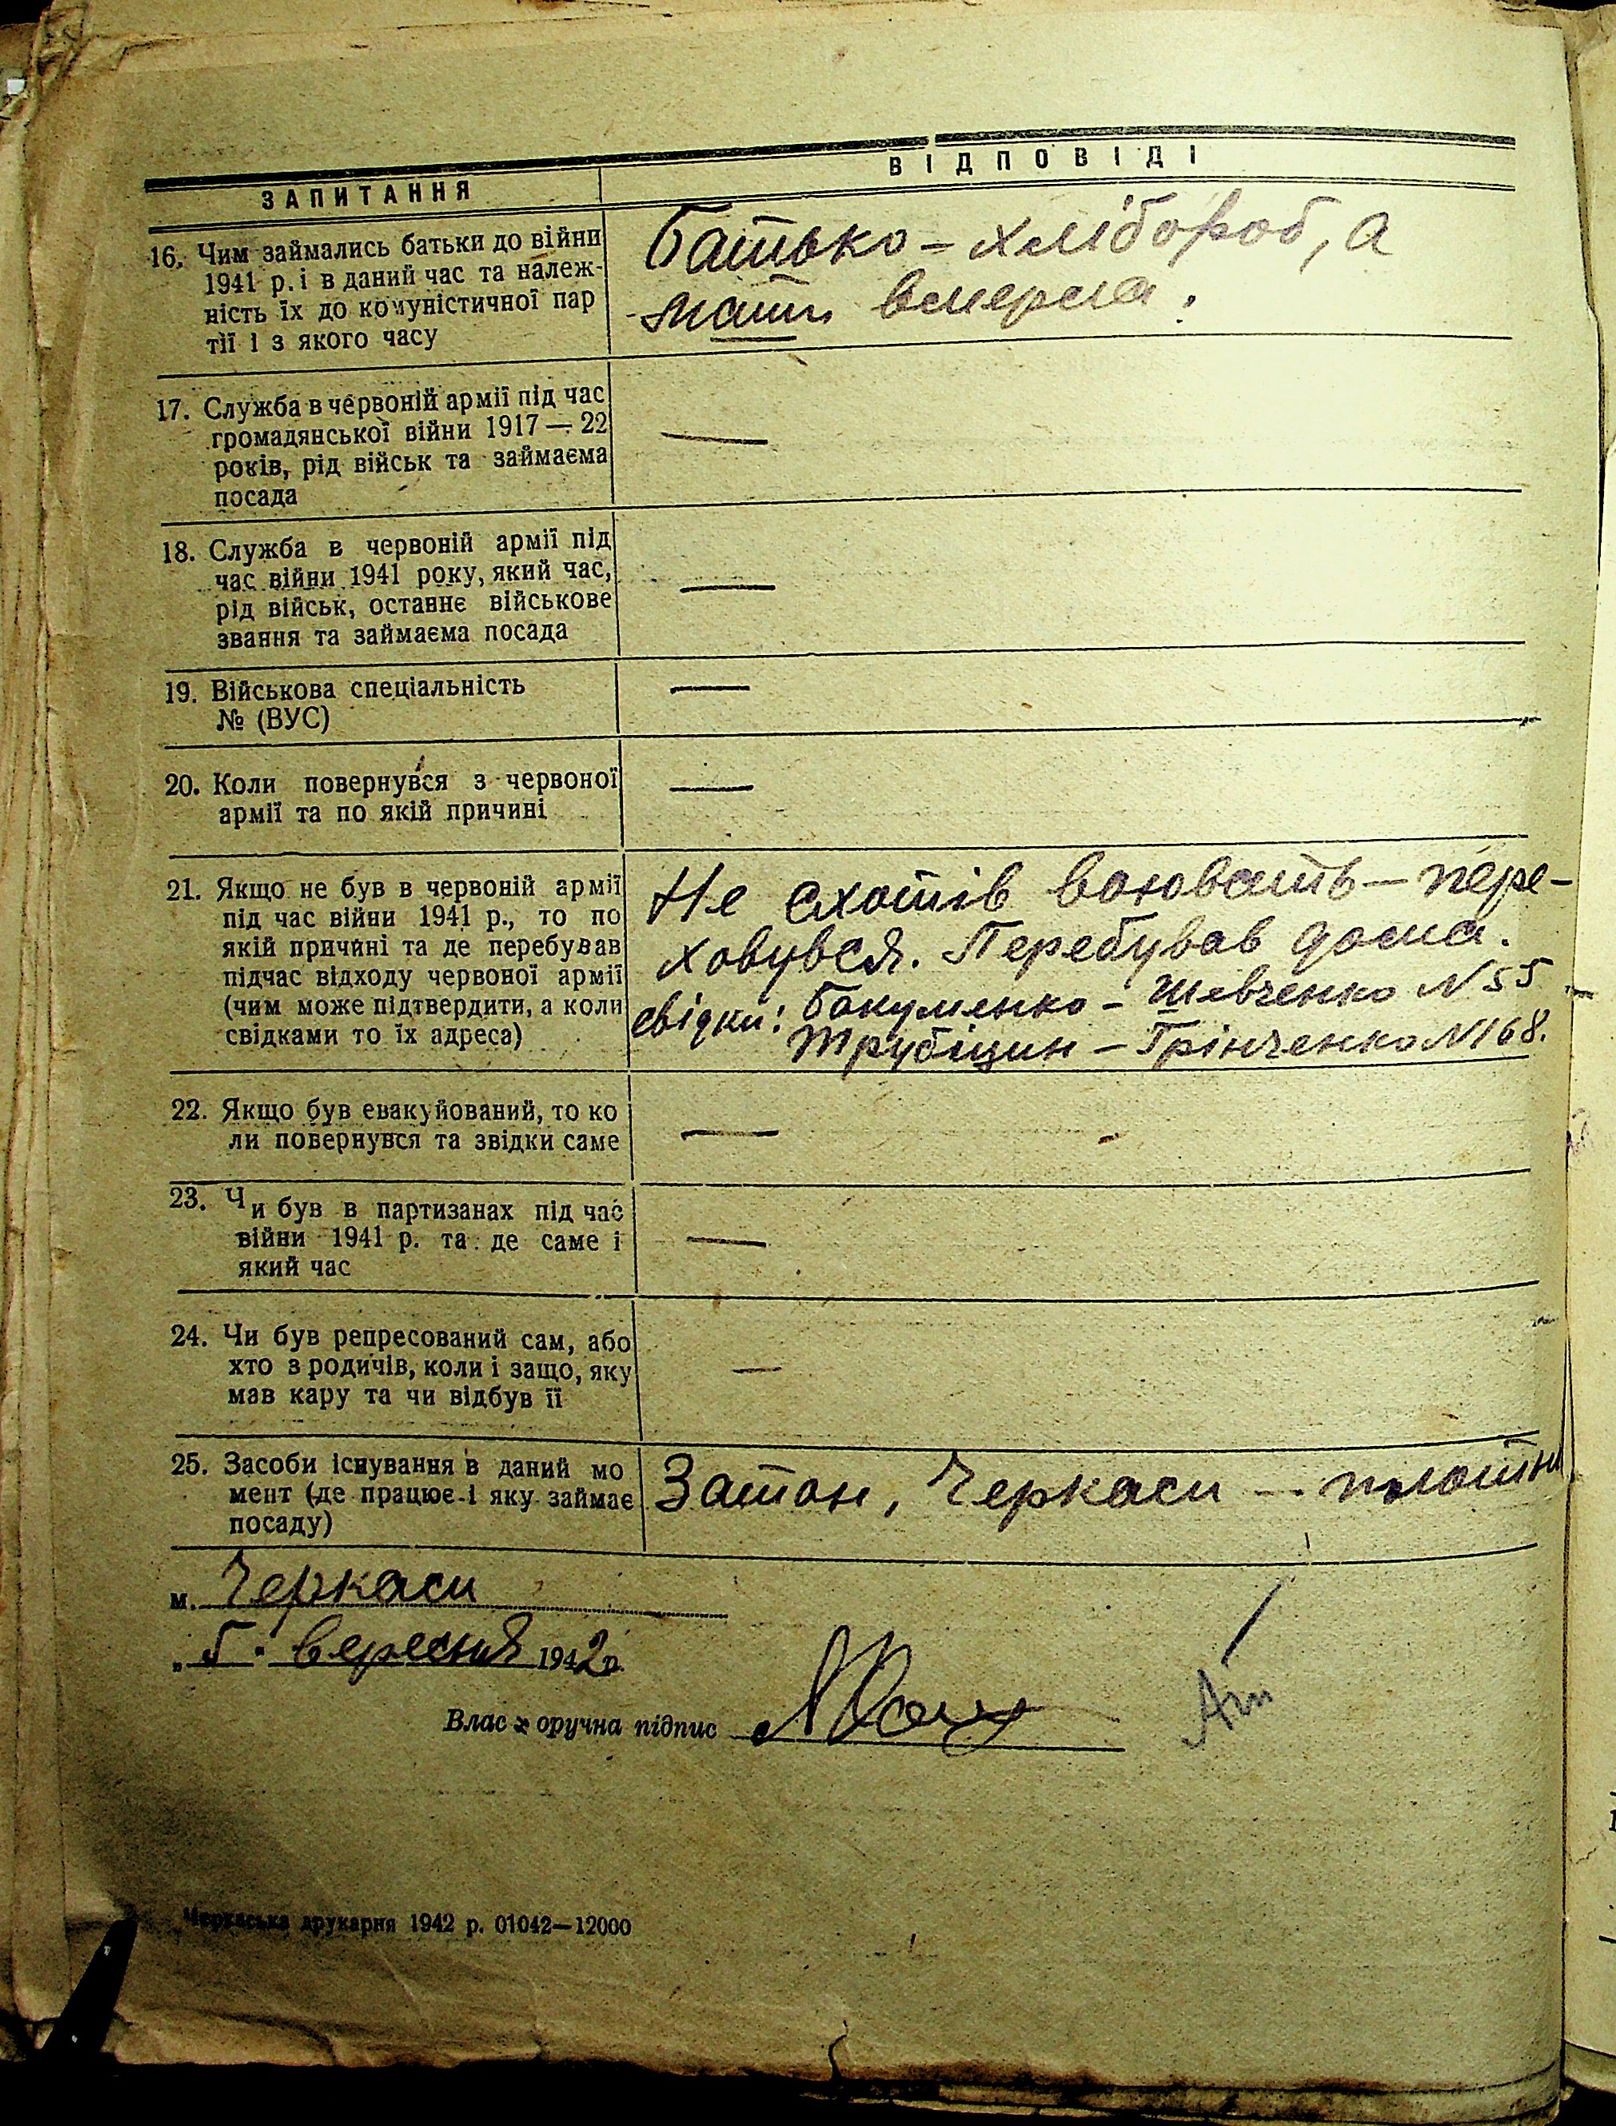 ЗАПИТАННЯ
ВІДПОВІДІ
16. Чим займались батьки до війни
1941 р. і в даний час та належ-
ність їх до комуністичної пар
тії і з якого часу
Батько – хлібороб, а
мати вмерла.
17. Служба в червоній армії під час
громадянської війни 1917 — 22
років, рід військ та займаєма
посада
—
18. Служба в червоній армії під
час війни 1941 року, який час,
рід військ, останнє військове
звання та займаєма посада
—
19. Військова спеціальність
№ (ВУС)
—
20. Коли повернувся з червоної
армії та по якій причині
—
21. Якщо не був в червоній армії
під час війни 1941 р., то по
якій причині та де перебував
підчас відходу червоної армії
(чим може підтвердити, а коли
свідками то їх адреса)
Не схотів воювать – пере-
ховувся. Перебував дома.
свідки: Бакуменко – Шевченко N 55
Трубіцин – Грінченко N 168.
22. Якщо був евакуйований, то ко
ли повернувся та звідки саме
—
23. Чи був в партизанах під час
війни 1941 р. та де саме і
який час
—
24. Чи був репресований сам, або
хто з родичів, коли і защо, яку
мав кару та чи відбув її
—
25. Засоби існування в даний мо
мент (де працює і яку займає
посаду)
Затон, Черкаси –
м. Черкаси
„ 5 " вересня 1942 р.
Власноручна підпис
Черкаська друкарня 1942 р. 01042—12000